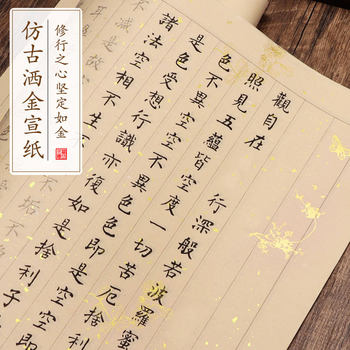 仿古洒金宣纸
修行之心坚定如金
觀自在
行深般若波羅蜜
照見五蘊皆空度一切苦厄捨利
色不異空空不異色色即是空空即
是色受想行識亦復如是捨利子
諸法空相不生不
垢不
不減是故